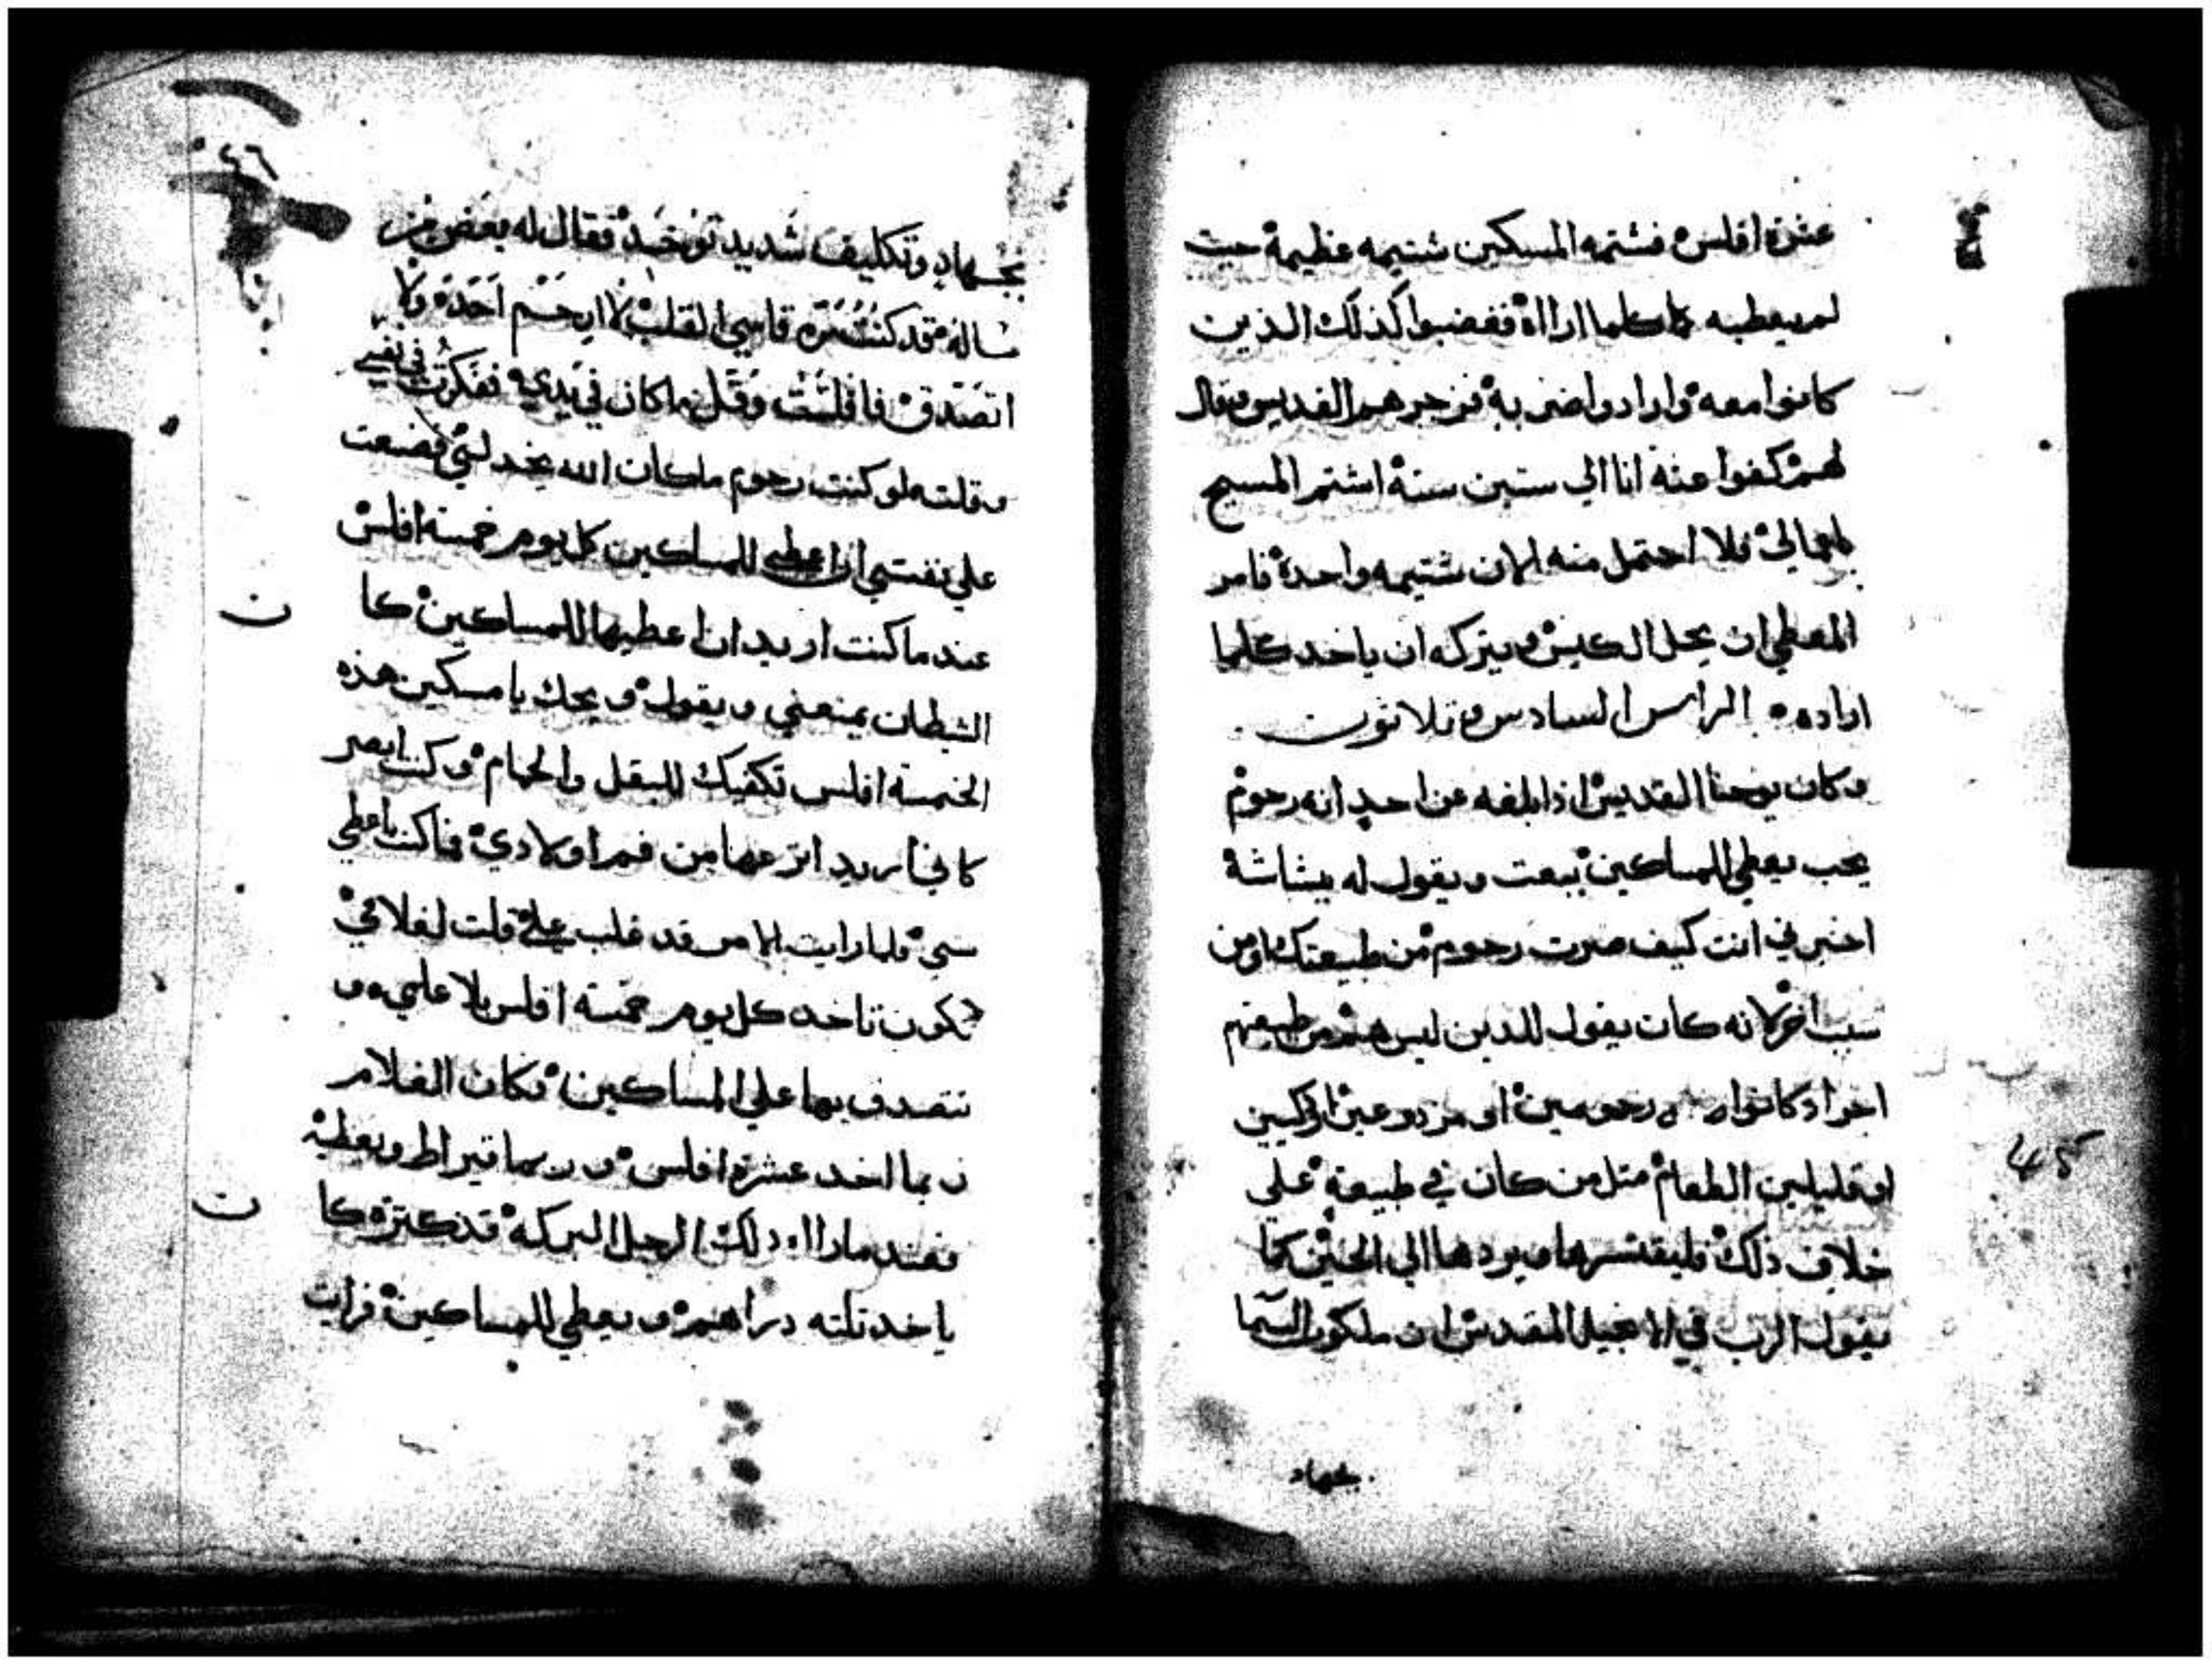 عشرة افلس فشتمه المسكين شتيمه عظيمة حيت
لم يعطيه كلما اراده فغضبوا كذلك الذين
كانوا معه وارادوا ضربه فزجرهم القديس وقال
لهم كفوا عنه انا الي ستين سنة اشتم المسيح
باعمالي فلا احتمل منه الان شتيمه واحدة فامر
المعطي ان يحل الكيس ويتركه ان ياخد كلما
اراده الراس السادس وتلاتون
وكان يوحنا القديس اذا بلغه عن احد انه رحوم
يحب يعطي للمساكين يبعت ويقول له ببشاشة
اخبرني انت كيف صرت رحوم من طبيعتك او من
سبب اخر لانه كان يقول للدين ليس هم من طبيعتهم
اجواد كانوا رحومين او مزدوعين
او قليلين الطعام متل من كان في طبيعة علي
خلاف ذلك فليقتسرها ويردها الي الحين كما
يقول الرب في الانجيل المقدس ان ملكوت السما
بجهاد
45
٤٦
بجهاد وتكليف شديد توخد فقال له بعض من
ساله قد كنت مره قاسي القلب لا ارحم احد ولا
اتصدق فافلست وقل ما كان في يدي ففكرت في نفسي
وقلت لو كنت رحوم ما كان الله يخدلني فصنعت
علي نفسي ان اعطي للمساكين كل يوم خمسة افلس
عند ما كنت اريد ان اعطيها للمساكين كا
ن
الشيطان يمنعني ويقول ويحك يا مسكين هذه
الخمسة افلس تكفيك للبقل والحمام وكنت ابصر
كاني اريد انزعها من فم اولادي فما كنت اعطي
شي فلما رايت الامر قد غلب علي قلت لغلامي
تكون تاخد كل يوم خمسة افلس بلا علمي و
تتصدق بها علي المساكين فكان الغلام
ربما اخد عشرة افلس وربما قيراط ويعطيه
فعند ما راا دلك الرجل البركه قد كترة كا
ن
ياخد تلته دراهم ويعطي للمساكين فرايت